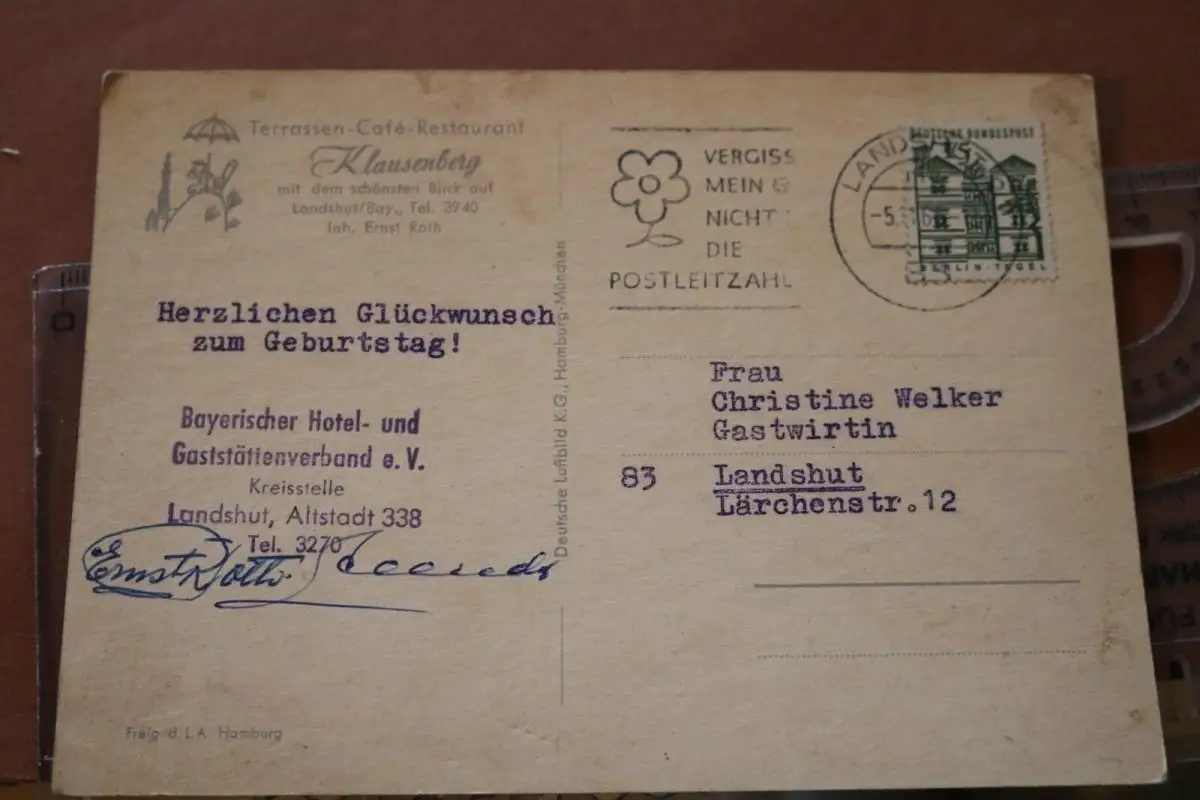 Terrassen-Café-Restaurant
Klausenberg
mit dem schönsten Blick auf
Landshut/Bay., Tel. 3940
Inh. Ernst Roth
Herzlichen Glückwunsch
zum Geburtstag!
Bayerischer Hotel- und
Gaststättenverband e.V.
Kreisstelle
Landshut, Altstadt 338
Tel. 3270
Ernst Roth
Freig. d. L.A. Hamburg
Deutsche Luftbild K.G., Hamburg-München
VERGISS
MEIN
NICHT
DIE
POSTLEITZAHL
DEUTSCHE BUNDESPOST
BERLIN-TEGEL
Frau
Christine Welker
Gastwirtin
83 Landshut
Lärchenstr.12